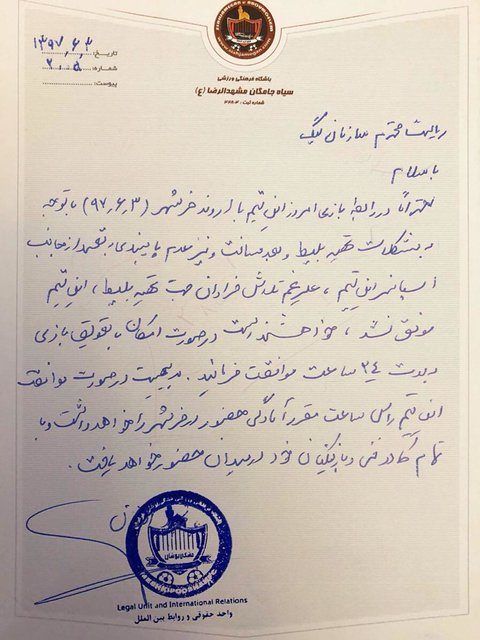 تاریخ: ۱۳۹۷٫۶٫۳
شماره: ۲۰۵
پیوست:
باشگاه فرهنگی ورزشی
سیاه جامگان مشهدالرضا (ع)
شماره ثبت: ۲۸۸۰
ریاست محترم سازمان لیگ
با سلام
احتراماً در رابطه بازی امروز این تیم با اروند خرمشهر (۹۷٫۶٫۳) با توجه
به مشکلات تهیه بلیط و بعد مسافت و نیز عدم پایبندی به تعهد از جانب
اسپانسر این تیم، علیرغم تلاش فراوان جهت تهیه بلیط، این تیم
موفق نشد، خواهشمند است در صورت امکان با تعویق بازی
به مدت ۲۴ ساعت موافقت فرمائید. بدیهیست در صورت موافقت
این تیم راس ساعت مقرر آمادگی حضور در خرمشهر را خواهد داشت و با
تمام کادر فنی و بازیکنان خود در میدان حضور خواهد یافت.
Legal Unit and International Relations
واحد حقوقی و روابط بین الملل